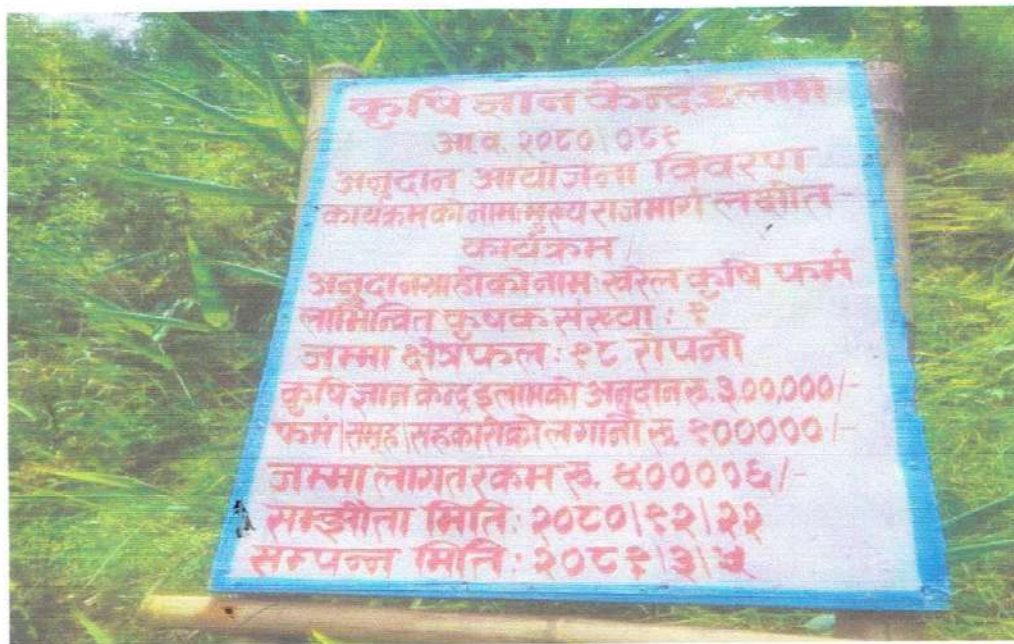 कृषि ज्ञान केन्द्र इलाम
आ.व. २०८०|०८१
अनुदान आयोजना विवरण
कार्यक्रमको नाम: मुख्य राजमार्ग लक्षीत
कार्यक्रम
अनुदानग्राहीको नाम: खरेल कृषि फर्म
लाभिन्वित कृषक संख्या: १
जम्मा क्षेत्रफल: १८ रोपनी
कृषि ज्ञान केन्द्र इलामको अनुदान रु. ३,००,०००/-
फर्म|समूह|सहकारीको लगानी रु. १०००००/-
जम्मा लागत रकम रु. ४००००६/-
सम्झौता मिति: २०८०|१२|२२
सम्पन्न मिति: २०८१|३|५